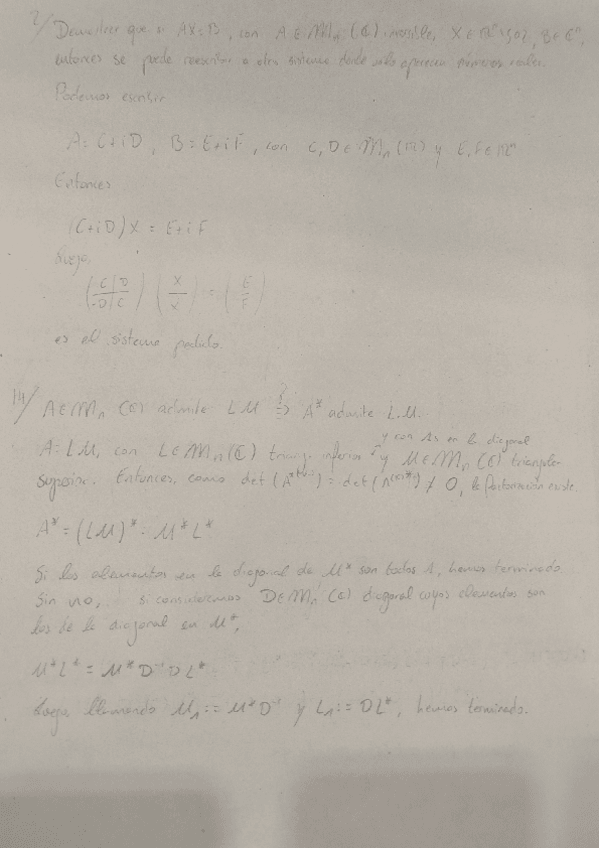 2/ Demostrar que si AX=B, con A ∈ Mn (C) invertible, X ∈ ℝⁿ\{0}, B ∈ ℂⁿ,
entonces se puede reescribir a otro sistema donde solo aparecen números reales.
Podemos escribir
A = C+iD, B = E+iF, con C, D ∈ Mn (ℝ) y E, F ∈ ℝⁿ
Entonces
(C+iD) X = E+iF
luego,
(C D / -D C) (X / X) = (E / F)
es el sistema pedido.
14/ A ∈ Mn (C) admite LU ⇒? A* admite LU.
y con 1s en la diagonal
A = LU, con L ∈ Mn (C) triang. inferior y U ∈ Mn (C) triangular
superior. Entonces, como det ( ) = det ( ) ≠ 0, la factorización existe.
A* = (LU)* = U* L*
Si los elementos en la diagonal de U* son todos 1, hemos terminado.
Sin no, si consideremos D ∈ Mn (C) diagonal cuyos elementos son
los de la diagonal en U*,
U* L* = U* D⁻¹ D L*
Luego llamando U₁ := U* D⁻¹ y L₁ := D L*, hemos terminado.